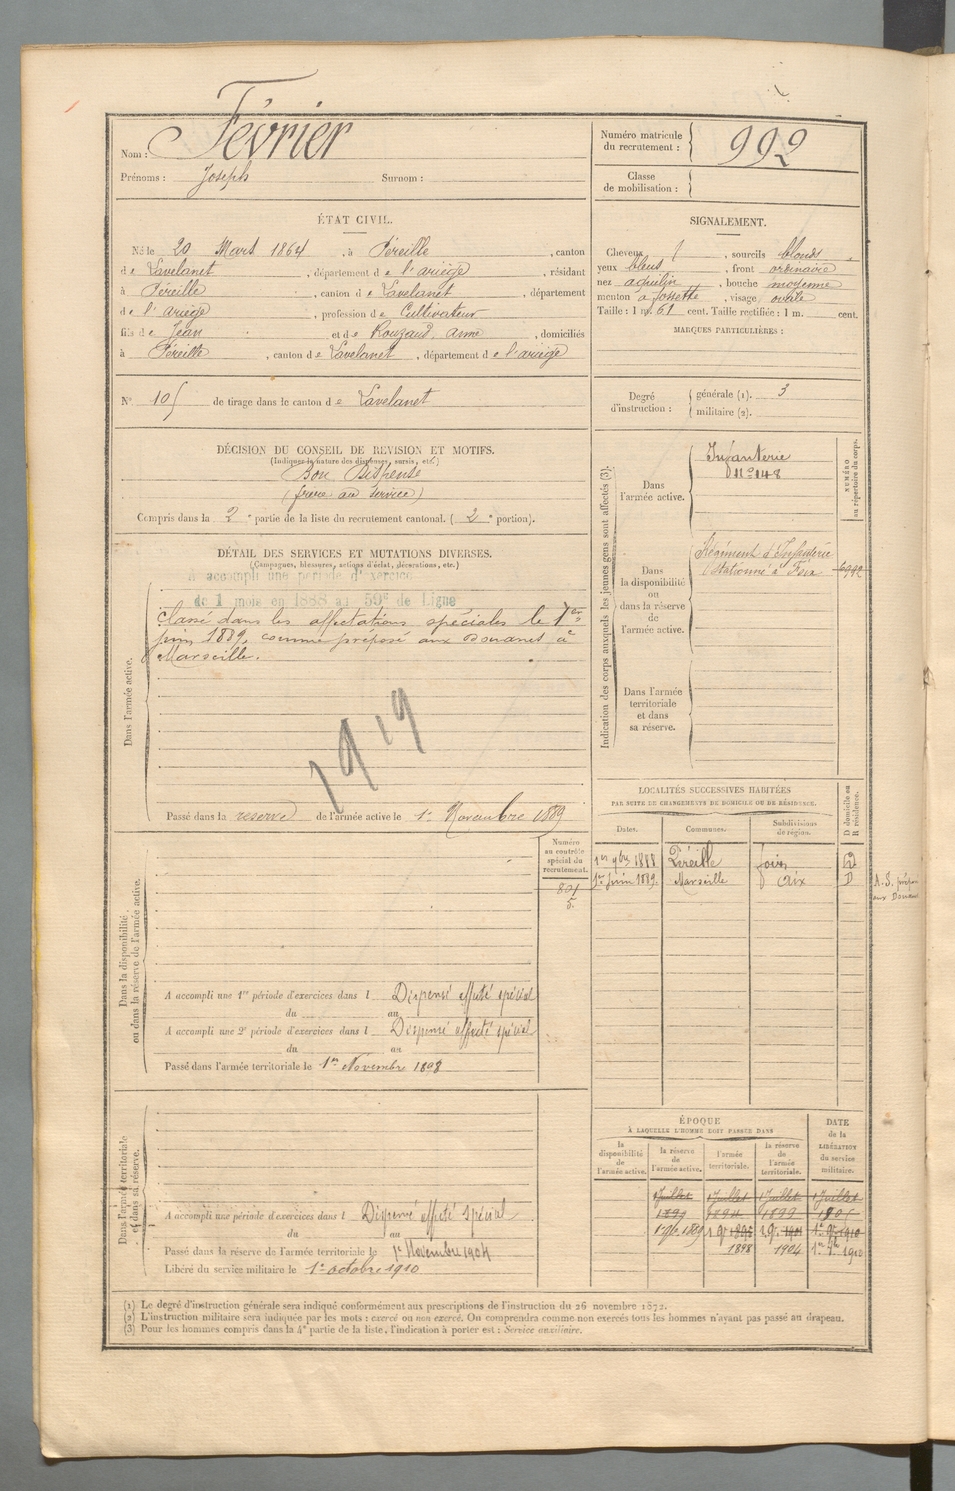 Nom : Février
Prénoms : Joseph Surnom :
Numéro matricule du recrutement : 992
Classe de mobilisation :
ÉTAT CIVIL.
Né le 20 Mars 1864, à Péreille, canton
de Lavelanet, département de l'ariège, résidant
à Péreille, canton de Lavelanet, département
de l'ariège, profession de Cultivateur
fils de Jean et de Rouzaud, anne, domiciliés
à Péreille, canton de Lavelanet, département de l'ariège
SIGNALEMENT.
Cheveux, sourcils blonds,
yeux bleus, front ordinaire
nez aquilin, bouche moyenne
menton à fossette, visage ovale
Taille : 1 m. 61 cent. Taille rectifiée : 1 m. cent.
MARQUES PARTICULIÈRES :
N° 105 de tirage dans le canton de Lavelanet
Degré d'instruction : générale (1). 3
militaire (2).
DÉCISION DU CONSEIL DE REVISION ET MOTIFS.
(Indiquer la nature des dispenses, sursis, etc.)
Bon Dispensé
(frère au service)
Compris dans la 2e partie de la liste du recrutement cantonal. (2e portion).
DÉTAIL DES SERVICES ET MUTATIONS DIVERSES.
(Campagnes, blessures, actions d'éclat, décorations, etc.)
Dans l'armée active.
A accompli une période d'exercice
de 1 mois en 1888 au 59e de Ligne
Classé dans les affectations spéciales le 1er
juin 1889, comme préposé aux Douanes à
Marseille.
1919
Passé dans la réserve de l'armée active le 1er Novembre 1889
Indication des corps auxquels les jeunes gens sont affectés (3).
NUMÉRO au répertoire du corps.
Dans l'armée active.
Infanterie
N° 148
Dans la disponibilité ou dans la réserve de l'armée active.
Régiment d'Infanterie
Stationné à Foix 6992
Dans l'armée territoriale et dans sa réserve.
LOCALITÉS SUCCESSIVES HABITÉES
PAR SUITE DE CHANGEMENTS DE DOMICILE OU DE RÉSIDENCE.
D domicile ou R résidence.
Dates. Communes. Subdivisions de région.
1er 9bre 1888 Péreille foix D
1er juin 1889. Marseille aix D
A.S. prépo
aux Douanes
Dans la disponibilité ou dans la réserve de l'armée active.
Numéro au contrôle spécial du recrutement.
801
5.
A accompli une 1re période d'exercices dans l Dispensé affecté spécial
du au
A accompli une 2e période d'exercices dans l Dispensé affecté spécial
du au
Passé dans l'armée territoriale le 1er Novembre 1898
Dans l'armée territoriale et dans sa réserve.
A accompli une période d'exercices dans l Dispensé affecté spécial
du au
Passé dans la réserve de l'armée territoriale le 1er Novembre 1904
Libéré du service militaire le 1er octobre 1910
ÉPOQUE
À LAQUELLE L'HOMME DOIT PASSER DANS
DATE de la LIBÉRATION du service militaire.
la disponibilité de l'armée active. la réserve de l'armée active. l'armée territoriale. la réserve de l'armée territoriale.
1 Juillet 1 Juillet 1 Juillet 1 Juillet
1889 1894 1899
1898 1904 1910
(1) Le degré d'instruction générale sera indiqué conformément aux prescriptions de l'instruction du 26 novembre 1872.
(2) L'instruction militaire sera indiquée par les mots : exercé ou non exercé. On comprendra comme non exercés tous les hommes n'ayant pas passé au drapeau.
(3) Pour les hommes compris dans la 4e partie de la liste, l'indication à porter est : Service auxiliaire.